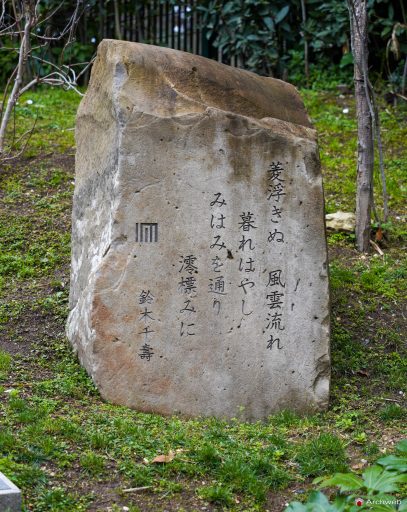 菱浮きぬ 風雲流れ
暮れはやし
みはみを通り
澪標みに
鈴木千壽
Archweb